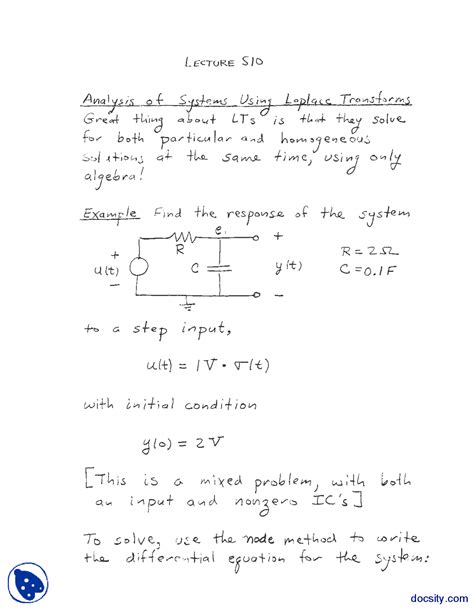 LECTURE S10
Analysis of Systems Using Laplace Transforms
Great thing about LTs is that they solve
for both particular and homogeneous
solutions at the same time, using only
algebra!
Example Find the response of the system
e₁ +
+ R R = 2Ω
u(t) C y(t) C = 0.1F
− −
to a step input,
u(t) = 1V · σ(t)
with initial condition
y(0) = 2V
[This is a mixed problem, with both
an input and nonzero IC's]
To solve, use the node method to write
the differential equation for the system:
docsity.com